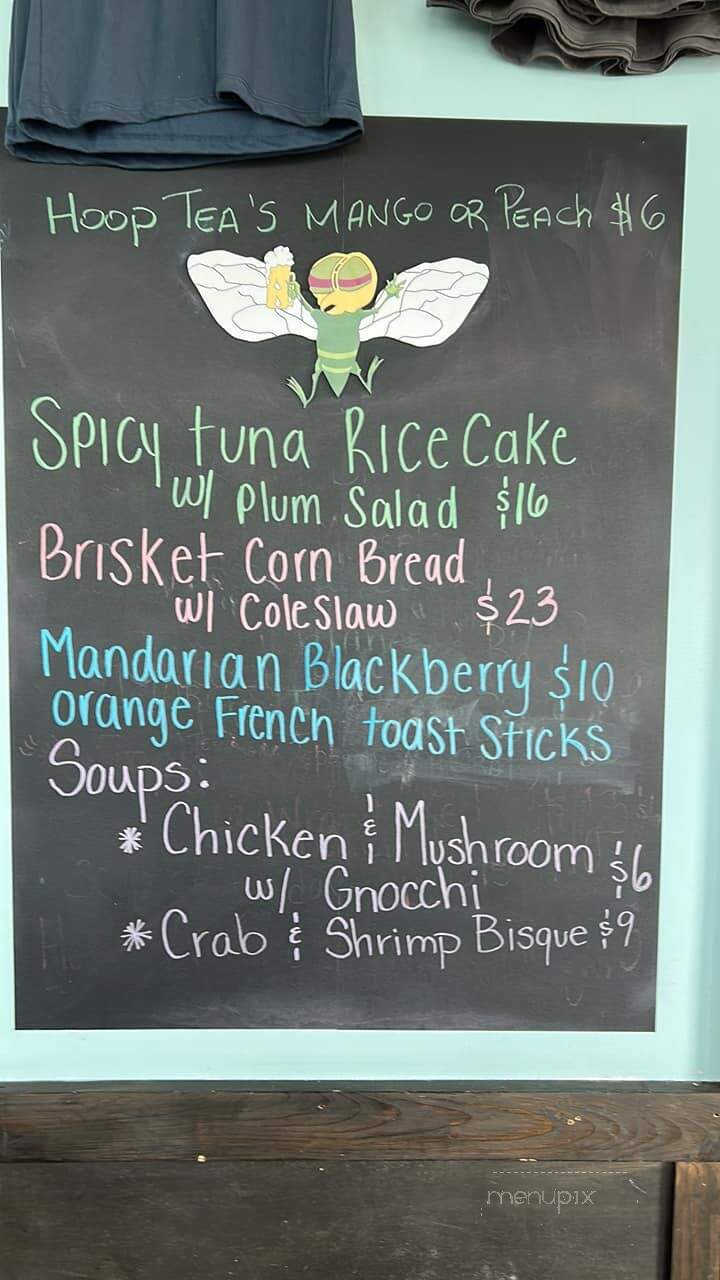 Hoop Tea's Mango or Peach $6
Spicy tuna Rice Cake
w/ Plum Salad $16
Brisket Corn Bread
w/ Coleslaw $23
Mandarian Blackberry $10
orange French toast Sticks
Soups:
* Chicken & Mushroom $6
w/ Gnocchi
* Crab & Shrimp Bisque $9
menupix